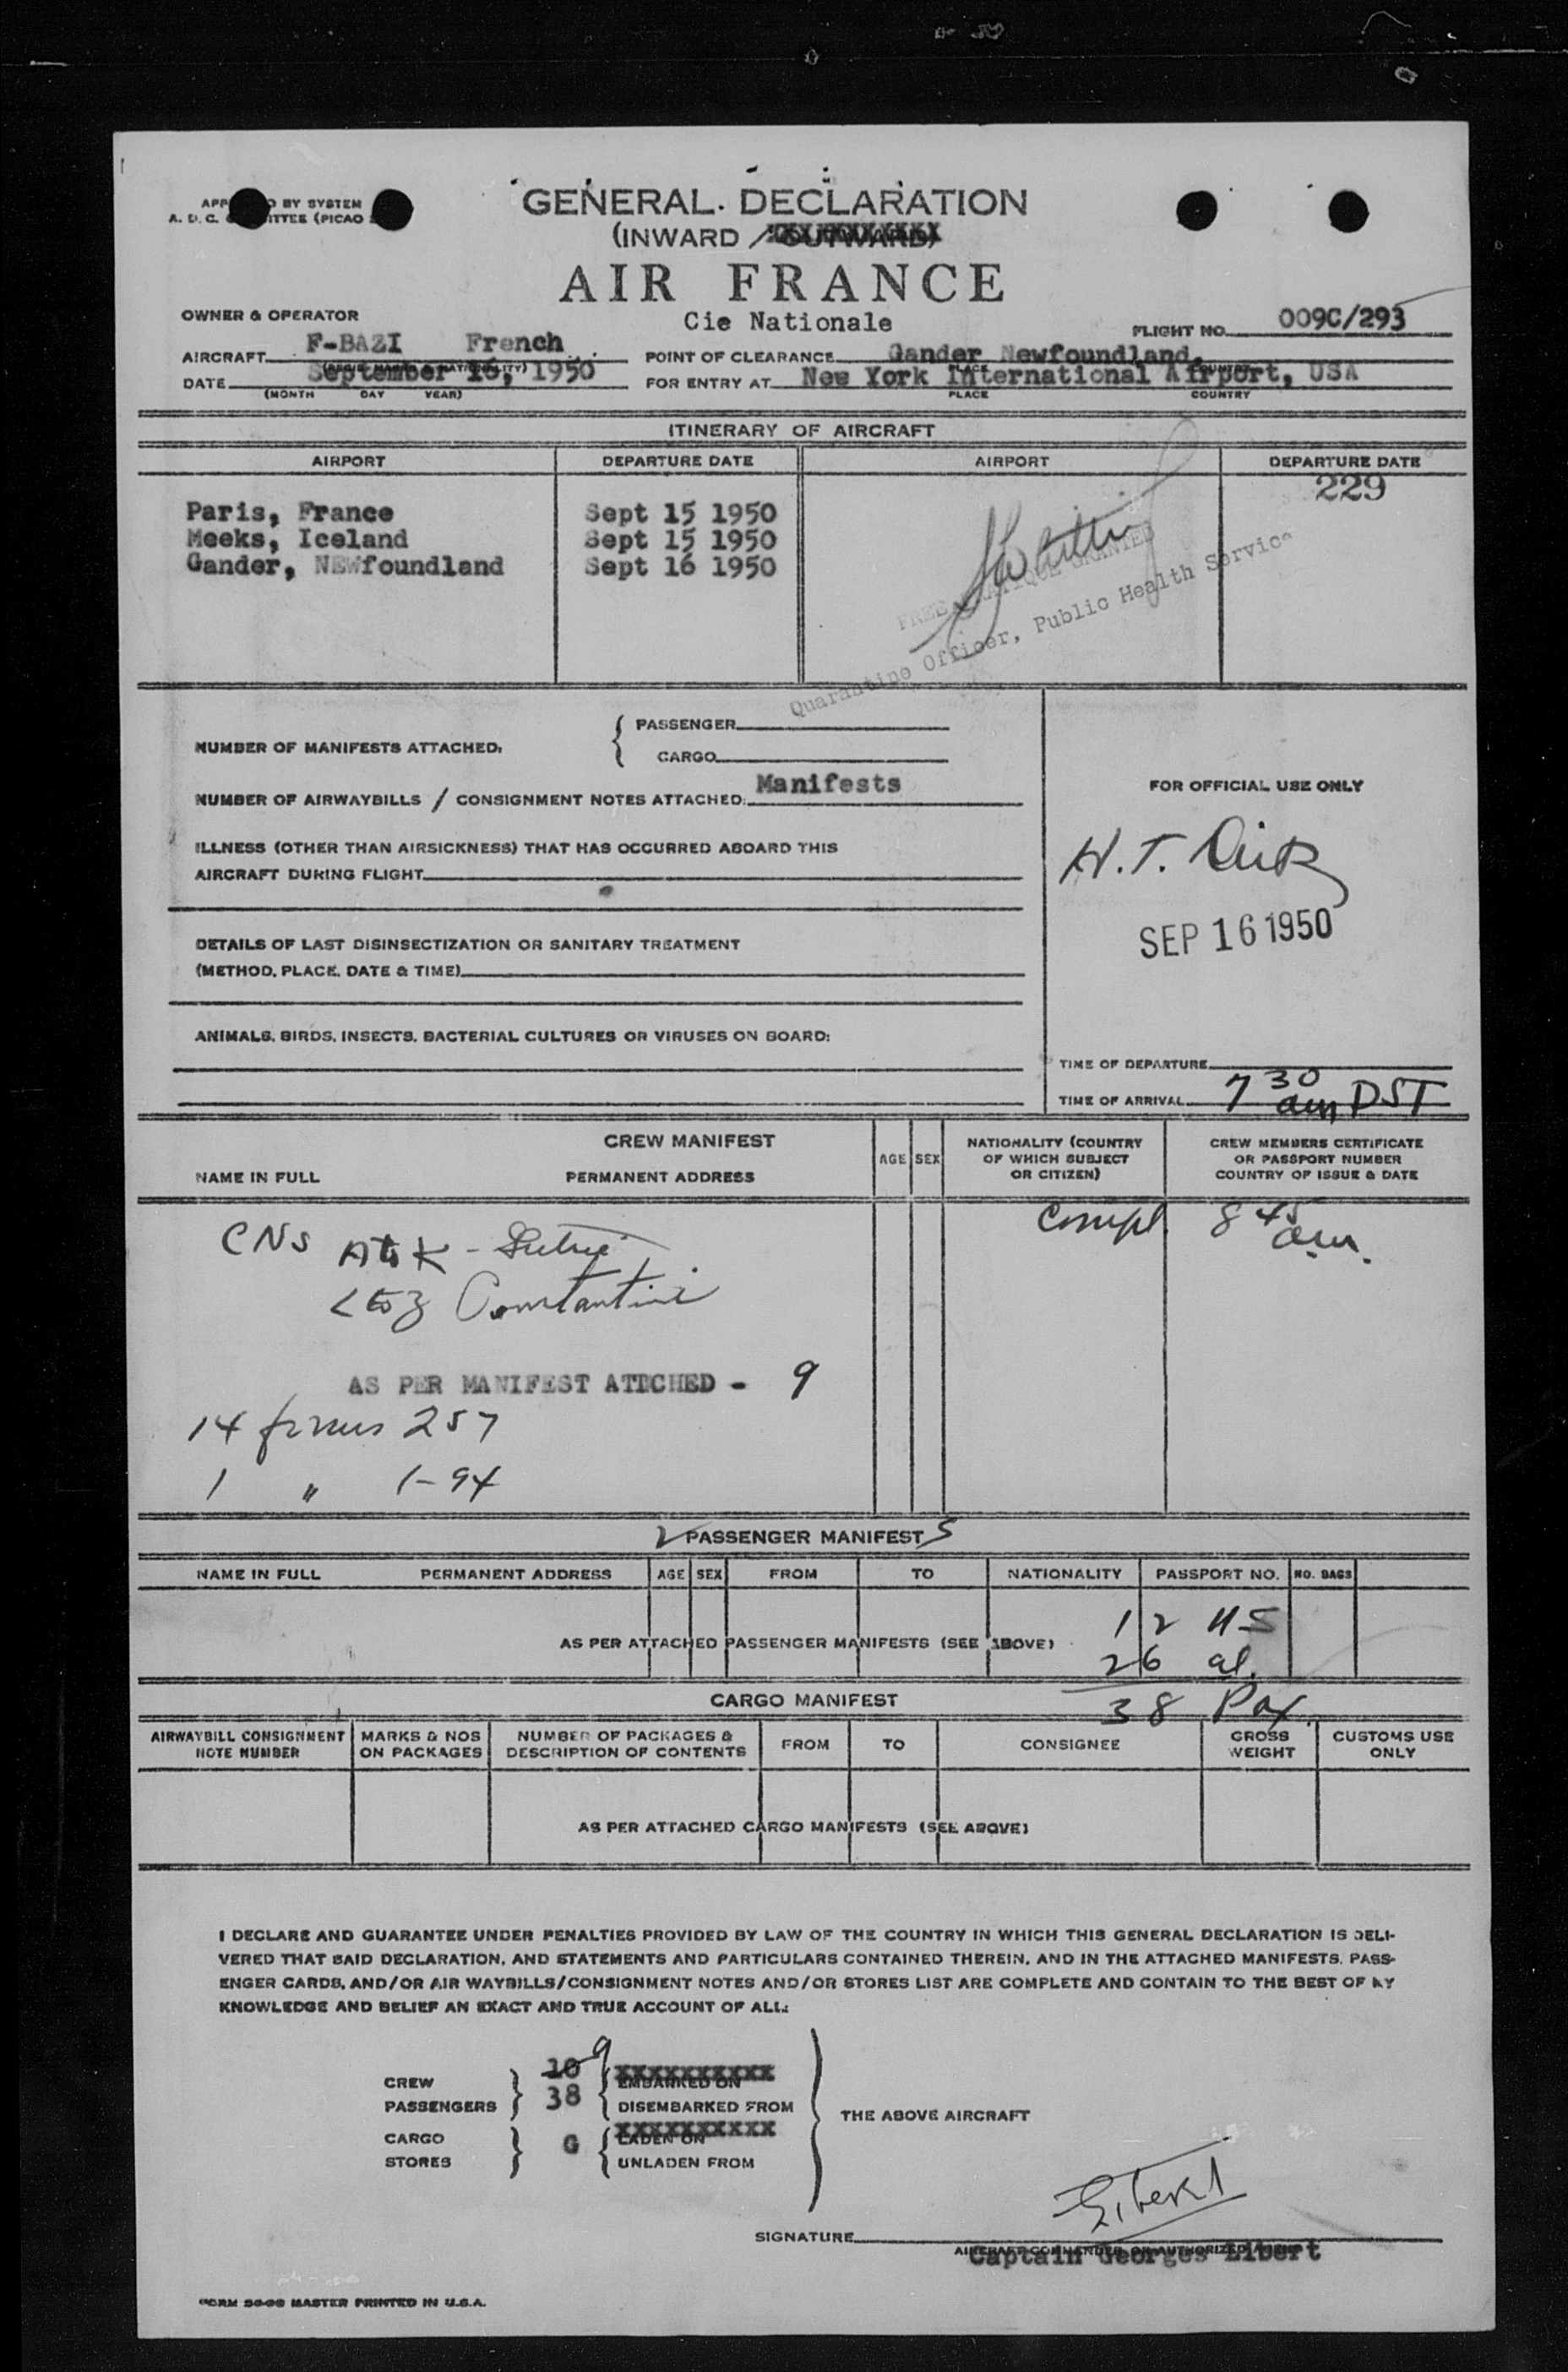 GENERAL DECLARATION
(INWARD / OUTWARD)
AIR FRANCE
Cie Nationale
BY SYSTEM
A. D. C. (PICAO
OWNER & OPERATOR
FLIGHT NO. 009C/293
AIRCRAFT F-BAZI French
POINT OF CLEARANCE Gander Newfoundland,
(MARKS & NATIONALITY) PLACE COUNTRY
DATE September 16, 1950
FOR ENTRY AT New York International Airport, USA
(MONTH DAY YEAR)
PLACE COUNTRY
ITINERARY OF AIRCRAFT
AIRPORT DEPARTURE DATE AIRPORT DEPARTURE DATE
229
Paris, France Sept 15 1950
Meeks, Iceland Sept 15 1950
Gander, NEWfoundland Sept 16 1950
FREE PRATIQUE GRANTED
Quarantine Officer, Public Health Service
NUMBER OF MANIFESTS ATTACHED: { PASSENGER
CARGO
NUMBER OF AIRWAYBILLS / CONSIGNMENT NOTES ATTACHED: Manifests
FOR OFFICIAL USE ONLY
ILLNESS (OTHER THAN AIRSICKNESS) THAT HAS OCCURRED ABOARD THIS
AIRCRAFT DURING FLIGHT
H.T.
SEP 16 1950
DETAILS OF LAST DISINSECTIZATION OR SANITARY TREATMENT
(METHOD, PLACE, DATE & TIME)
ANIMALS, BIRDS, INSECTS, BACTERIAL CULTURES OR VIRUSES ON BOARD:
TIME OF DEPARTURE
TIME OF ARRIVAL 7 30 am DST
CREW MANIFEST
NAME IN FULL PERMANENT ADDRESS AGE SEX
NATIONALITY (COUNTRY
OF WHICH SUBJECT
OR CITIZEN)
CREW MEMBERS CERTIFICATE
OR PASSPORT NUMBER
COUNTRY OF ISSUE & DATE
Compl 8 45 am.
CNS A to K -
L to Z Constantine
AS PER MANIFEST ATTCHED - 9
14 forms 257
1 " 1-94
2 PASSENGER MANIFEST S
NAME IN FULL PERMANENT ADDRESS AGE SEX FROM TO NATIONALITY PASSPORT NO. NO. BAGS
12 US
AS PER ATTACHED PASSENGER MANIFESTS (SEE ABOVE)
26 al.
38 Pax.
CARGO MANIFEST
AIRWAYBILL CONSIGNMENT
NOTE NUMBER
MARKS & NOS
ON PACKAGES
NUMBER OF PACKAGES &
DESCRIPTION OF CONTENTS
FROM TO CONSIGNEE
GROSS
WEIGHT
CUSTOMS USE
ONLY
AS PER ATTACHED CARGO MANIFESTS (SEE ABOVE)
I DECLARE AND GUARANTEE UNDER PENALTIES PROVIDED BY LAW OF THE COUNTRY IN WHICH THIS GENERAL DECLARATION IS DELI-
VERED THAT SAID DECLARATION, AND STATEMENTS AND PARTICULARS CONTAINED THEREIN, AND IN THE ATTACHED MANIFESTS, PASS-
ENGER CARDS, AND/OR AIR WAYBILLS/CONSIGNMENT NOTES AND/OR STORES LIST ARE COMPLETE AND CONTAIN TO THE BEST OF MY
KNOWLEDGE AND BELIEF AN EXACT AND TRUE ACCOUNT OF ALL:
CREW 10 9 XXXXXXXXXX EMBARKED ON
PASSENGERS 38 DISEMBARKED FROM
THE ABOVE AIRCRAFT
CARGO G XXXXXXXXXX LADEN ON
STORES UNLADEN FROM
Libert
SIGNATURE
Captain Georges Libert
FORM MASTER PRINTED IN U.S.A.